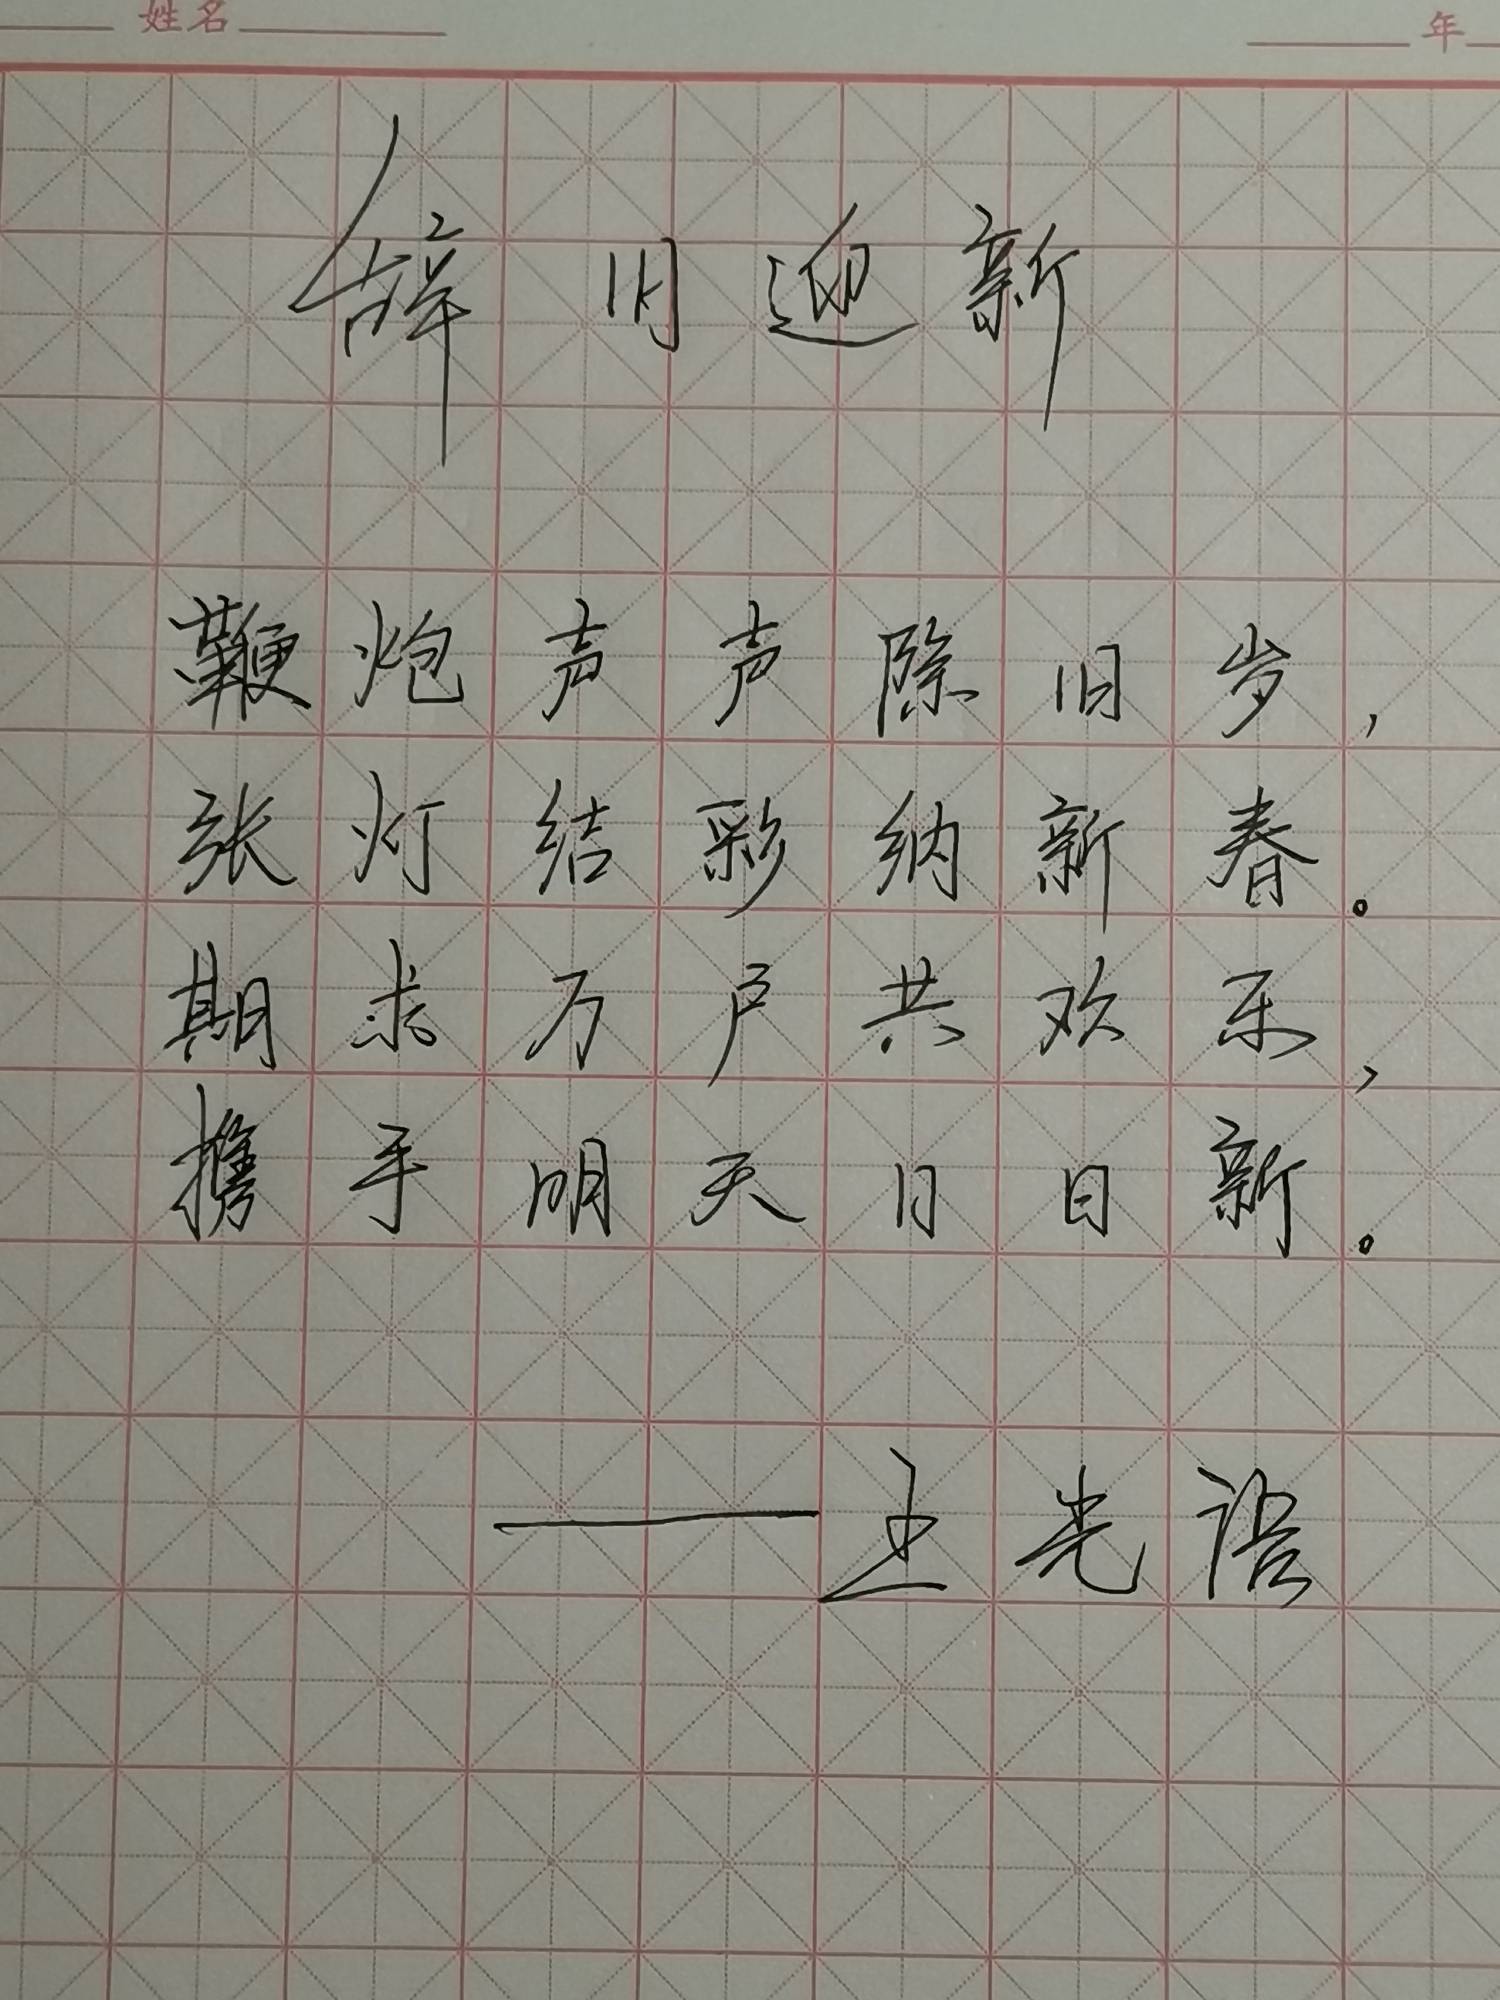 姓名 年
辞旧迎新
鞭炮声声除旧岁，
张灯结彩纳新春。
期求万户共欢乐，
携手明天日日新。
——王光语